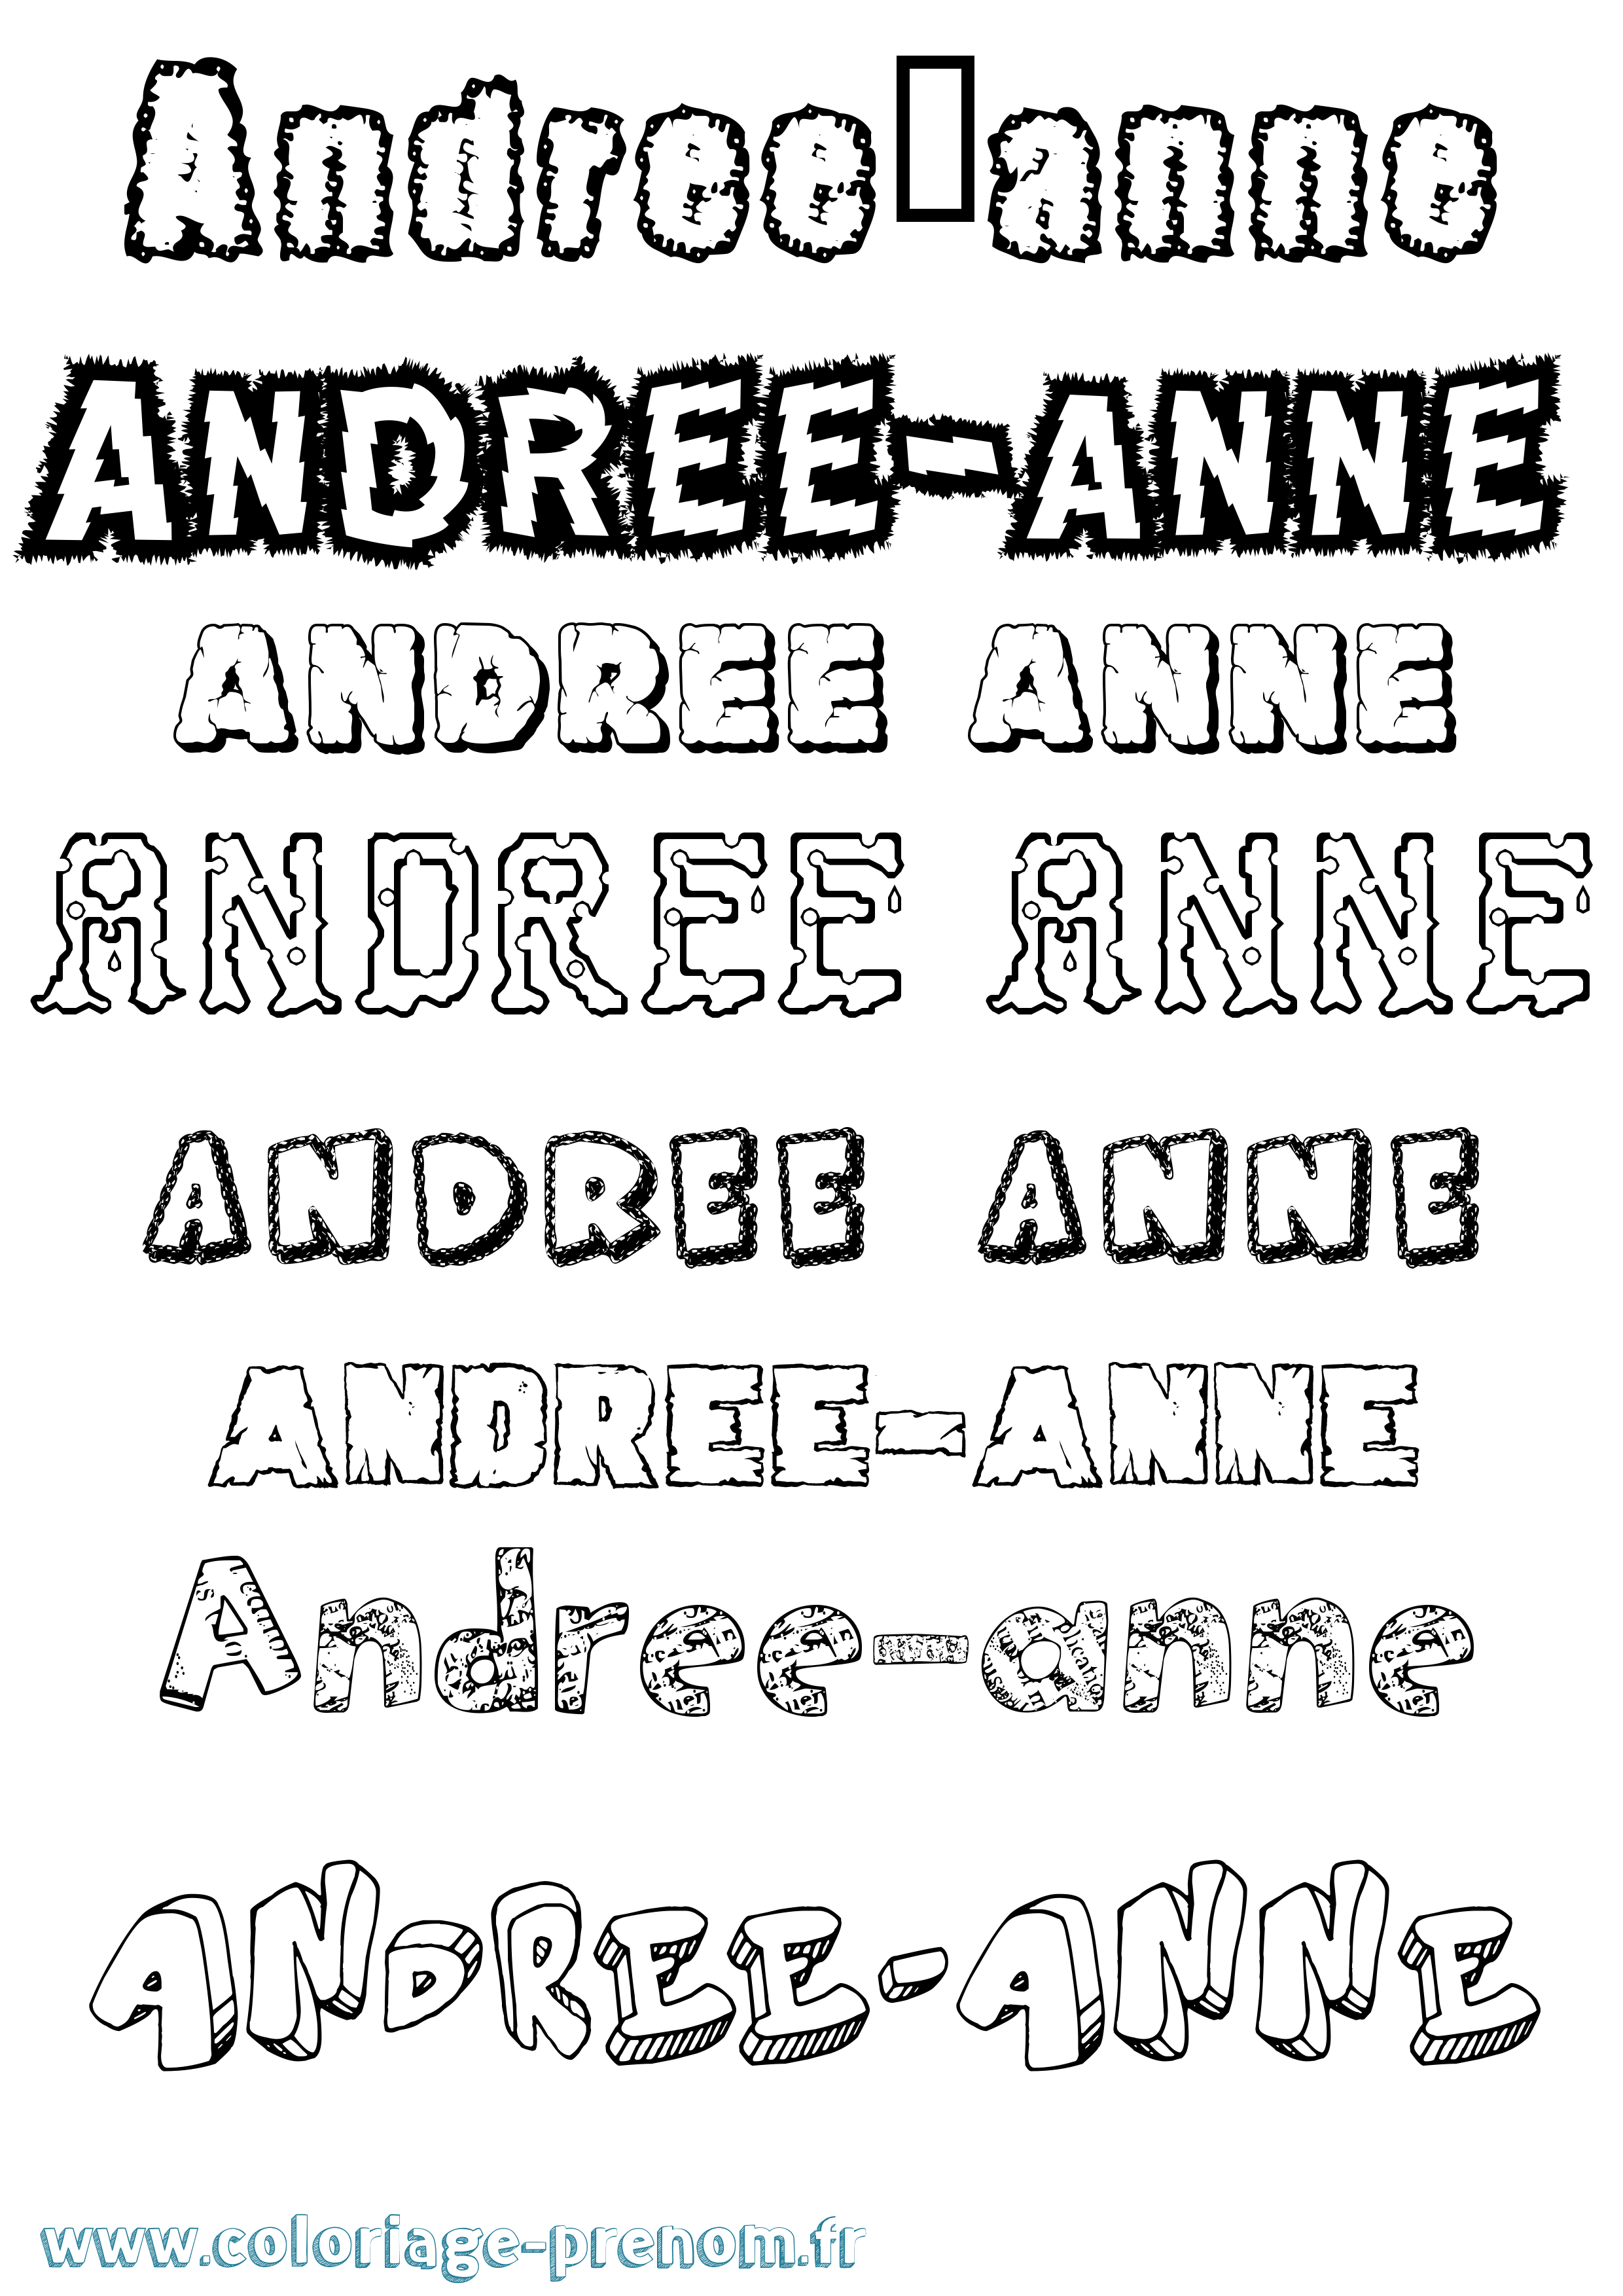 Andree▯anne
ANDREE-ANNE
ANDREE ANNE
ANDREE ANNE
ANDREE ANNE
ANDREE-ANNE
Andree-anne
ANDREE-ANNE
www.coloriage-prenom.fr